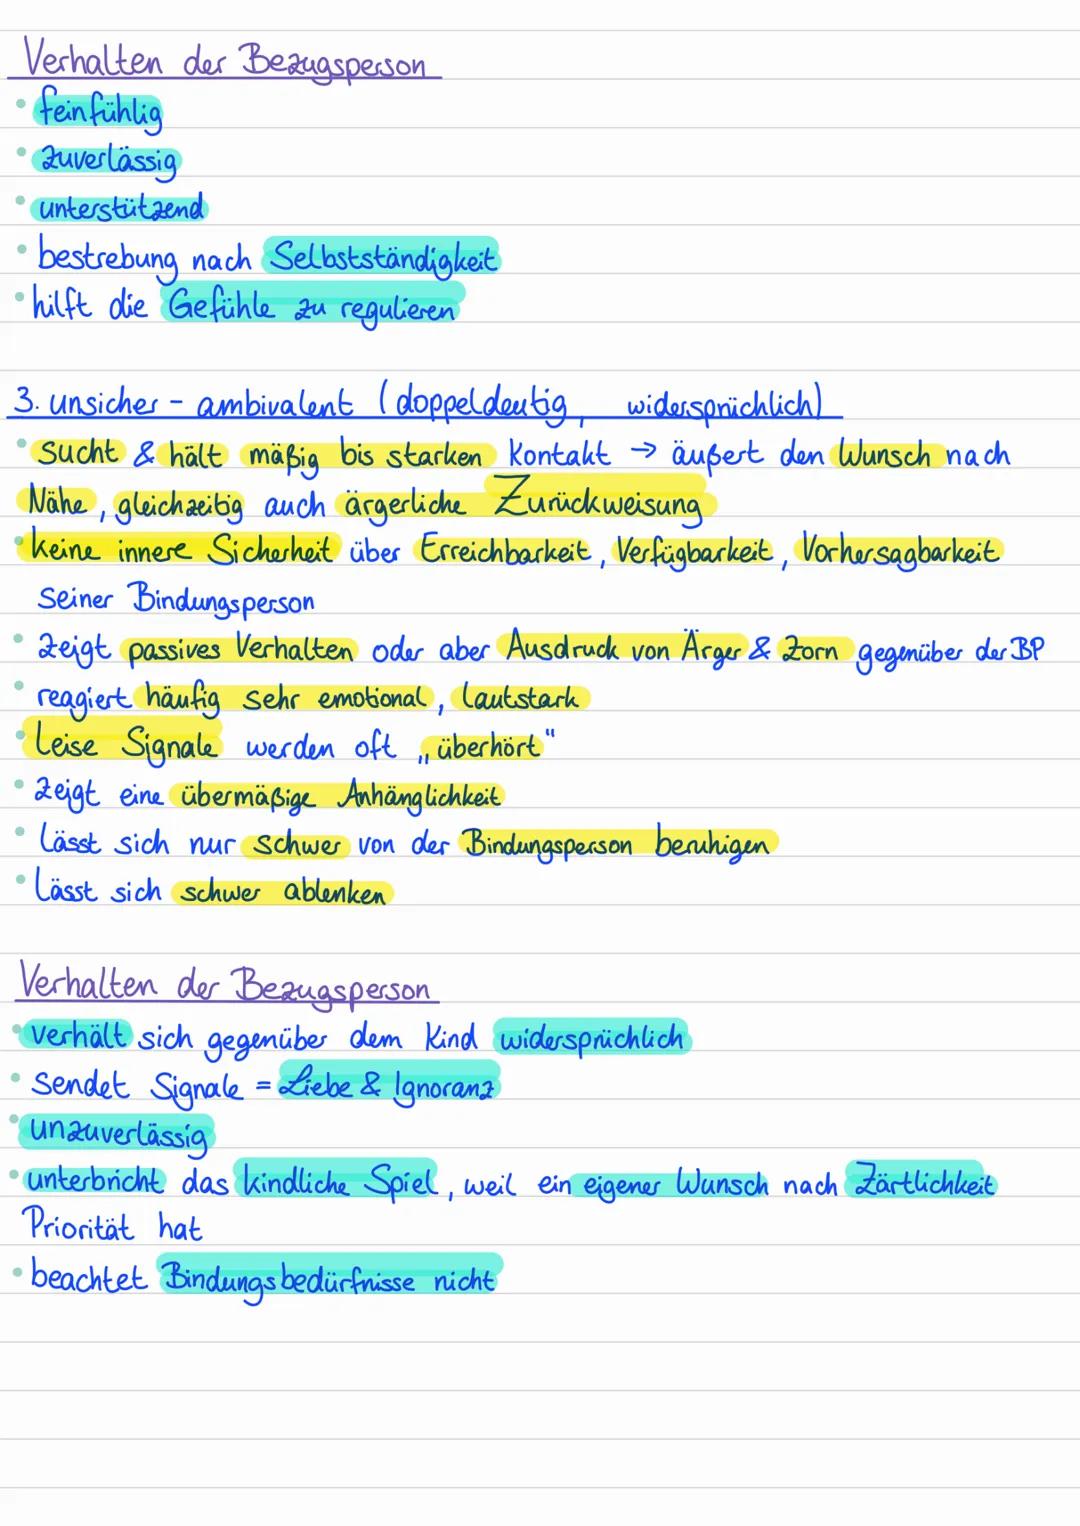 Verhalten der Bezugsperson
• feinfühlig
• zuverlässig
• unterstützend
• bestrebung nach Selbstständigkeit
• hilft die Gefühle zu regulieren
3. unsicher - ambivalent (doppeldeutig, widersprüchlich)
• sucht & hält mäßig bis starken Kontakt → äußert den Wunsch nach
Nähe, gleichzeitig auch ärgerliche Zurückweisung
• keine innere Sicherheit über Erreichbarkeit, Verfügbarkeit, Vorhersagbarkeit
seiner Bindungsperson
• zeigt passives Verhalten oder aber Ausdruck von Ärger & Zorn gegenüber der BP
• reagiert häufig sehr emotional, lautstark
• Leise Signale werden oft „überhört"
• zeigt eine übermäßige Anhänglichkeit
• Lässt sich nur schwer von der Bindungsperson beruhigen
• Lässt sich schwer ablenken
Verhalten der Bezugsperson
• verhält sich gegenüber dem Kind widersprüchlich
• sendet Signale = Liebe & Ignoranz
• unzuverlässig
• unterbricht das kindliche Spiel, weil ein eigener Wunsch nach Zärtlichkeit
Priorität hat
• beachtet Bindungsbedürfnisse nicht